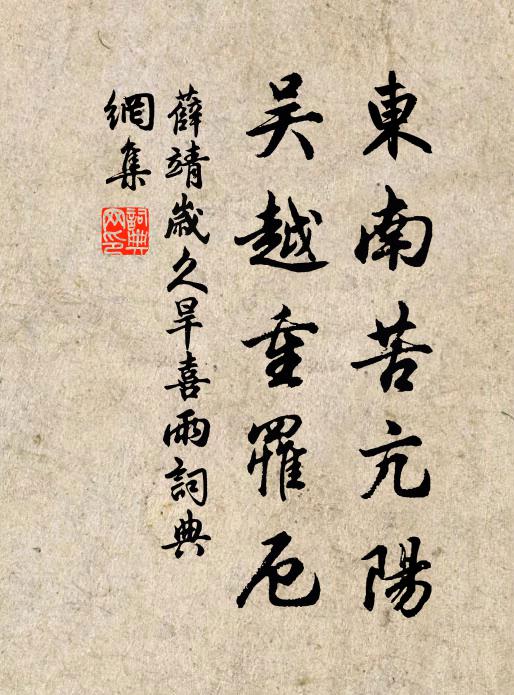 東南苦亢陽
吳越重罹厄
薛靖歲久旱喜雨詞典
網集
詞典網印